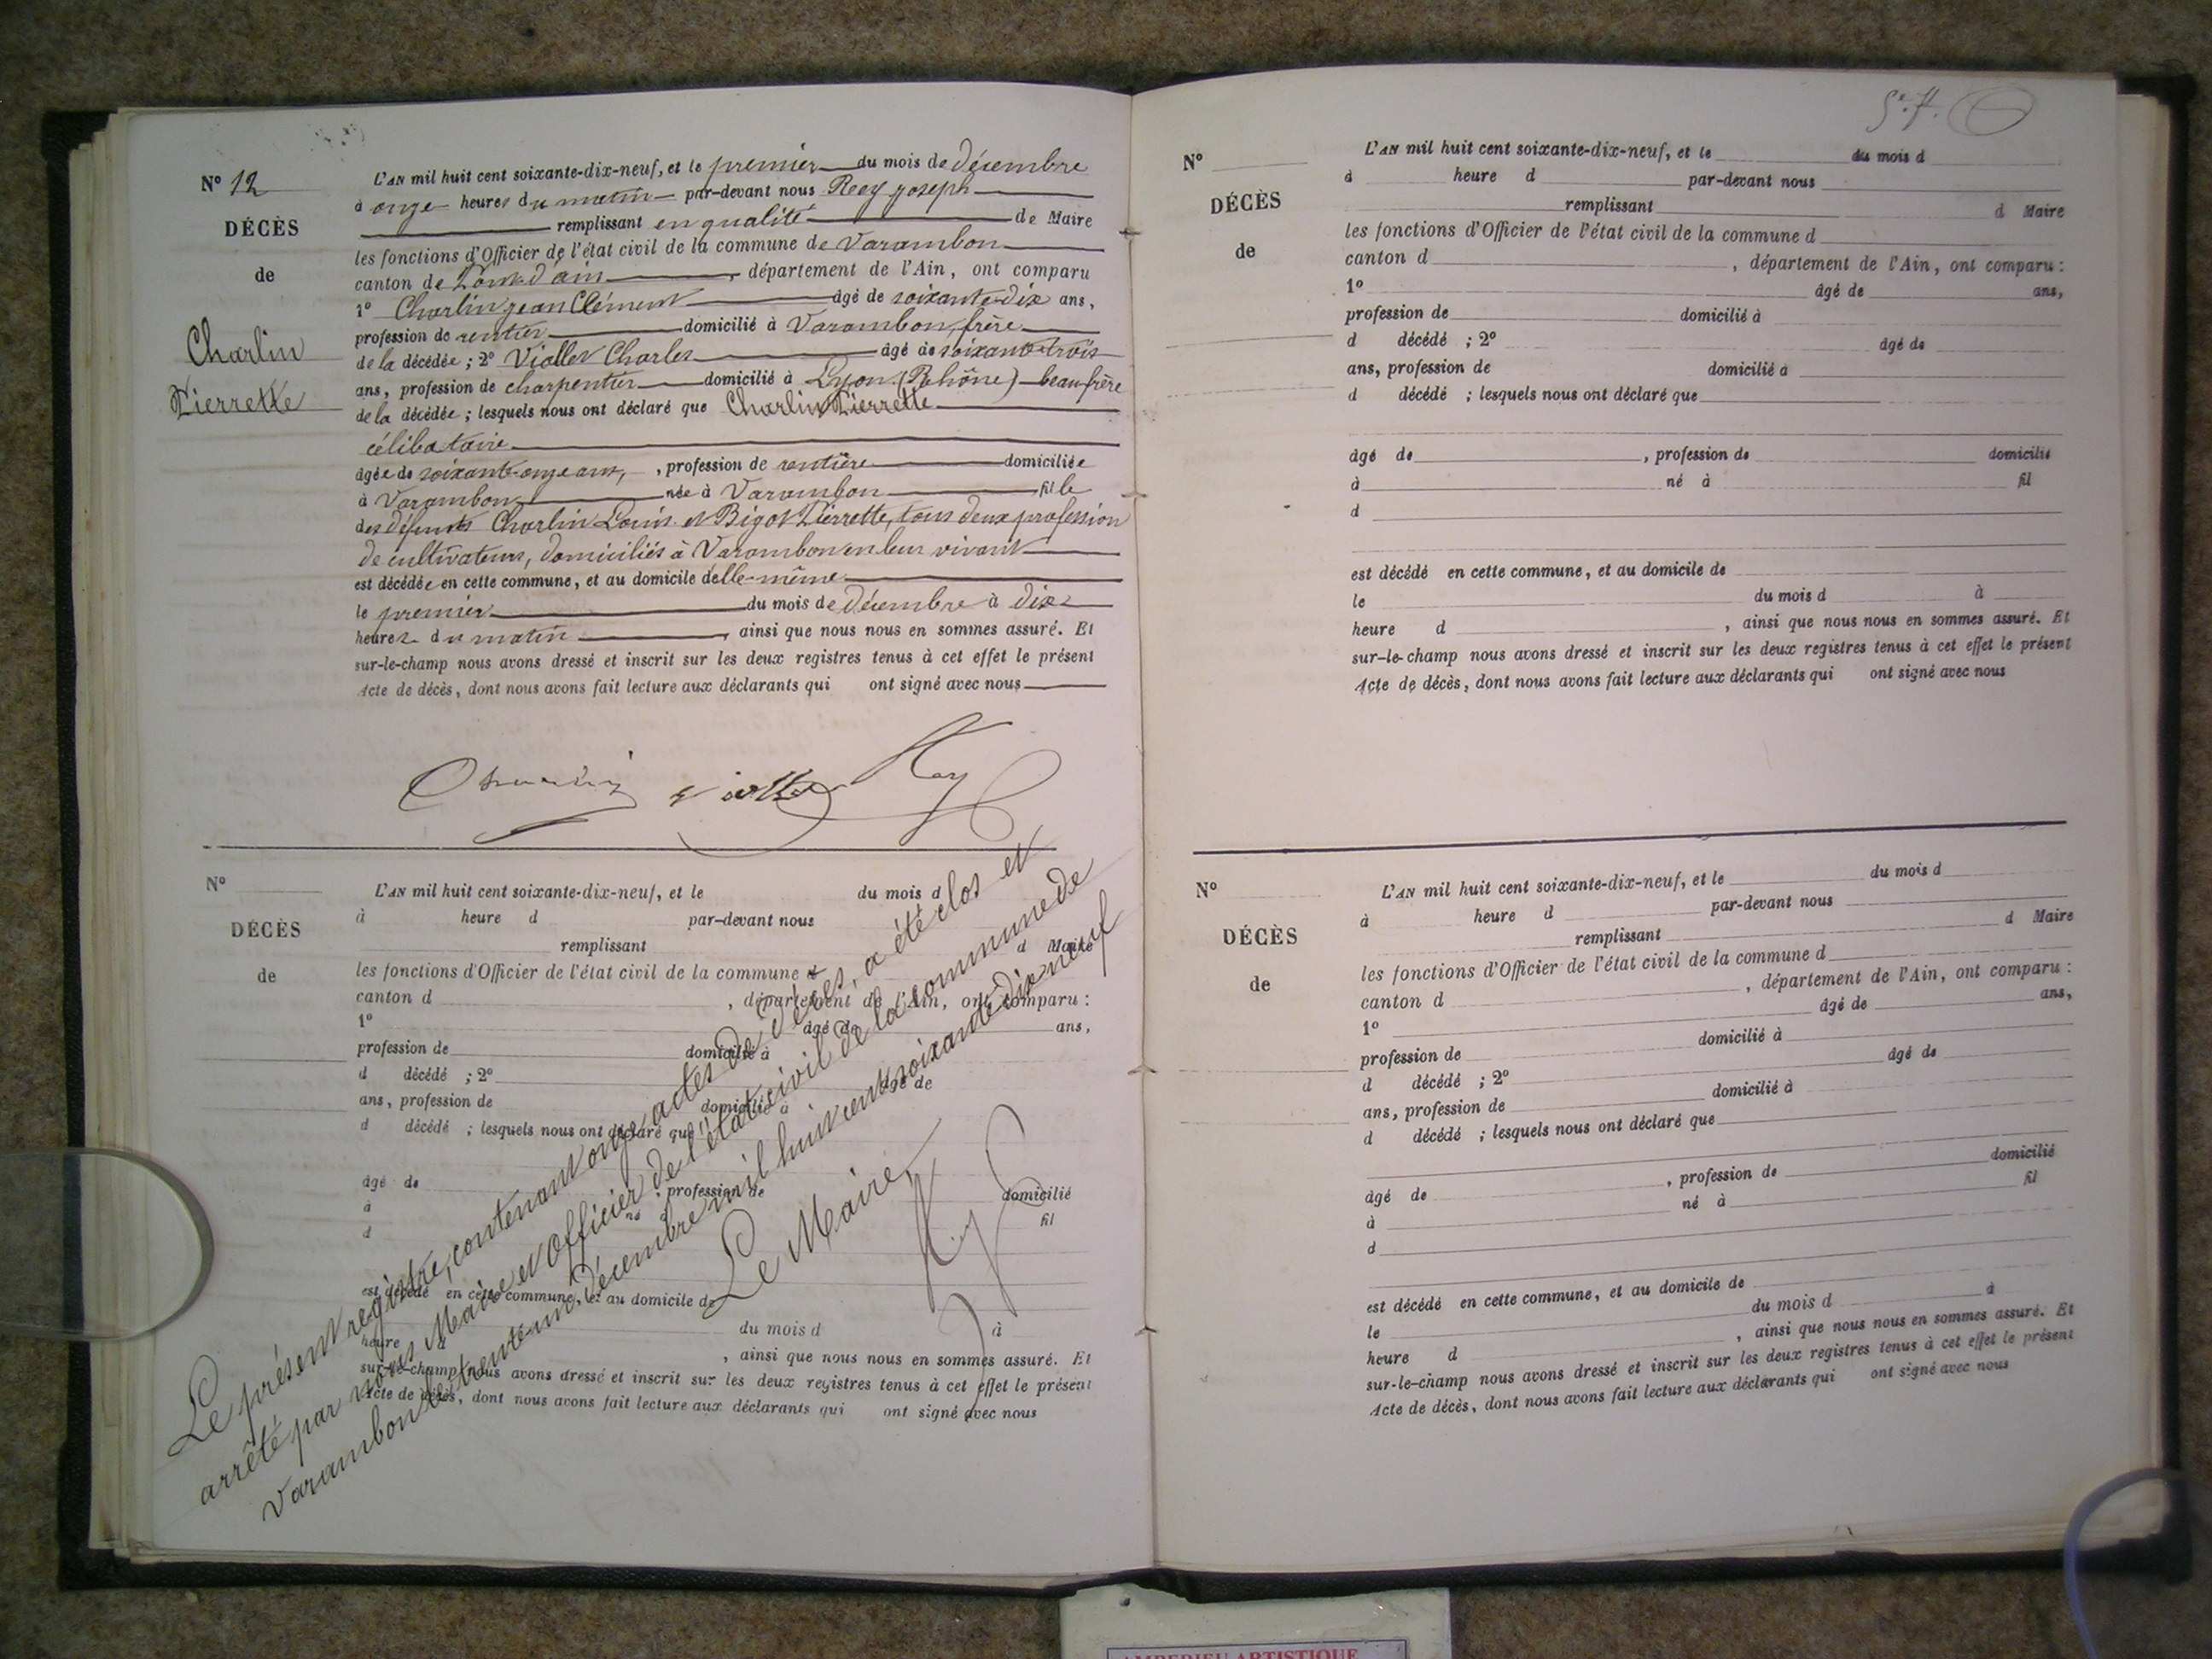 N° 12
DÉCÈS
de
Charlin
Pierrette
L'AN mil huit cent soixante-dix-neuf, et le premier du mois de décembre
à onze heures du matin par-devant nous Rey joseph
remplissant en qualité de Maire
les fonctions d'Officier de l'état civil de la commune de Varambon
canton de Pont-d'ain, département de l'Ain, ont comparu
1° Charlin jean Clément âgé de soixante-dix ans,
profession de rentier domicilié à Varambon, frère
de la décédée ; 2° Viollet Charles âgé de soixante-trois
ans, profession de charpentier domicilié à Lyon (Rhône) beau frère
de la décédée ; lesquels nous ont déclaré que Charlin Pierrette
célibataire
âgée de soixante-onze ans, , profession de rentière domiciliée
à Varambon née à Varambon fille
des défunts Charlin Louis et Bigot Pierrette, tous deux profession
de cultivateurs, domiciliés à Varambon en leur vivant
est décédée en cette commune, et au domicile delle-même
le premier du mois de décembre à dix
heures du matin, ainsi que nous nous en sommes assuré. Et
sur-le-champ nous avons dressé et inscrit sur les deux registres tenus à cet effet le présent
Acte de décès, dont nous avons fait lecture aux déclarants qui ont signé avec nous
Charlin Viollet Rey
N°
DÉCÈS
de
L'AN mil huit cent soixante-dix-neuf, et le du mois d
à heure d par-devant nous
remplissant d Maire
les fonctions d'Officier de l'état civil de la commune d
canton d , département de l'Ain, ont comparu :
1° âgé de ans,
profession de domicilié à
d décédé ; 2° âgé de
ans, profession de domicilié à
d décédé ; lesquels nous ont déclaré que
âgé de , profession de domicilié
à né à fil
d
est décédé en cette commune, et au domicile de
le du mois d à
heure d , ainsi que nous nous en sommes assuré. Et
sur-le-champ nous avons dressé et inscrit sur les deux registres tenus à cet effet le présent
Acte de décès, dont nous avons fait lecture aux déclarants qui ont signé avec nous
Le présent registre, contenant onze actes de décès, a été clos et
arrêté par nous Maire et Officier de l'état civil de la commune de
Varambon le trente-un décembre mil huit cent soixante-dix-neuf
Le Maire,
Rey
N°
DÉCÈS
de
L'AN mil huit cent soixante-dix-neuf, et le du mois d
à heure d par-devant nous
remplissant d Maire
les fonctions d'Officier de l'état civil de la commune d
canton d , département de l'Ain, ont comparu :
1° âgé de ans,
profession de domicilié à
d décédé ; 2° âgé de
ans, profession de domicilié à
d décédé ; lesquels nous ont déclaré que
âgé de , profession de domicilié
à né à fil
d
est décédé en cette commune, et au domicile de
le du mois d à
heure d , ainsi que nous nous en sommes assuré. Et
sur-le-champ nous avons dressé et inscrit sur les deux registres tenus à cet effet le présent
Acte de décès, dont nous avons fait lecture aux déclarants qui ont signé avec nous
N°
DÉCÈS
de
L'AN mil huit cent soixante-dix-neuf, et le du mois d
à heure d par-devant nous
remplissant d Maire
les fonctions d'Officier de l'état civil de la commune d
canton d , département de l'Ain, ont comparu :
1° âgé de ans,
profession de domicilié à
d décédé ; 2° âgé de
ans, profession de domicilié à
d décédé ; lesquels nous ont déclaré que
âgé de , profession de domicilié
à né à fil
d
est décédé en cette commune, et au domicile de
le du mois d à
heure d , ainsi que nous nous en sommes assuré. Et
sur-le-champ nous avons dressé et inscrit sur les deux registres tenus à cet effet le présent
Acte de décès, dont nous avons fait lecture aux déclarants qui ont signé avec nous